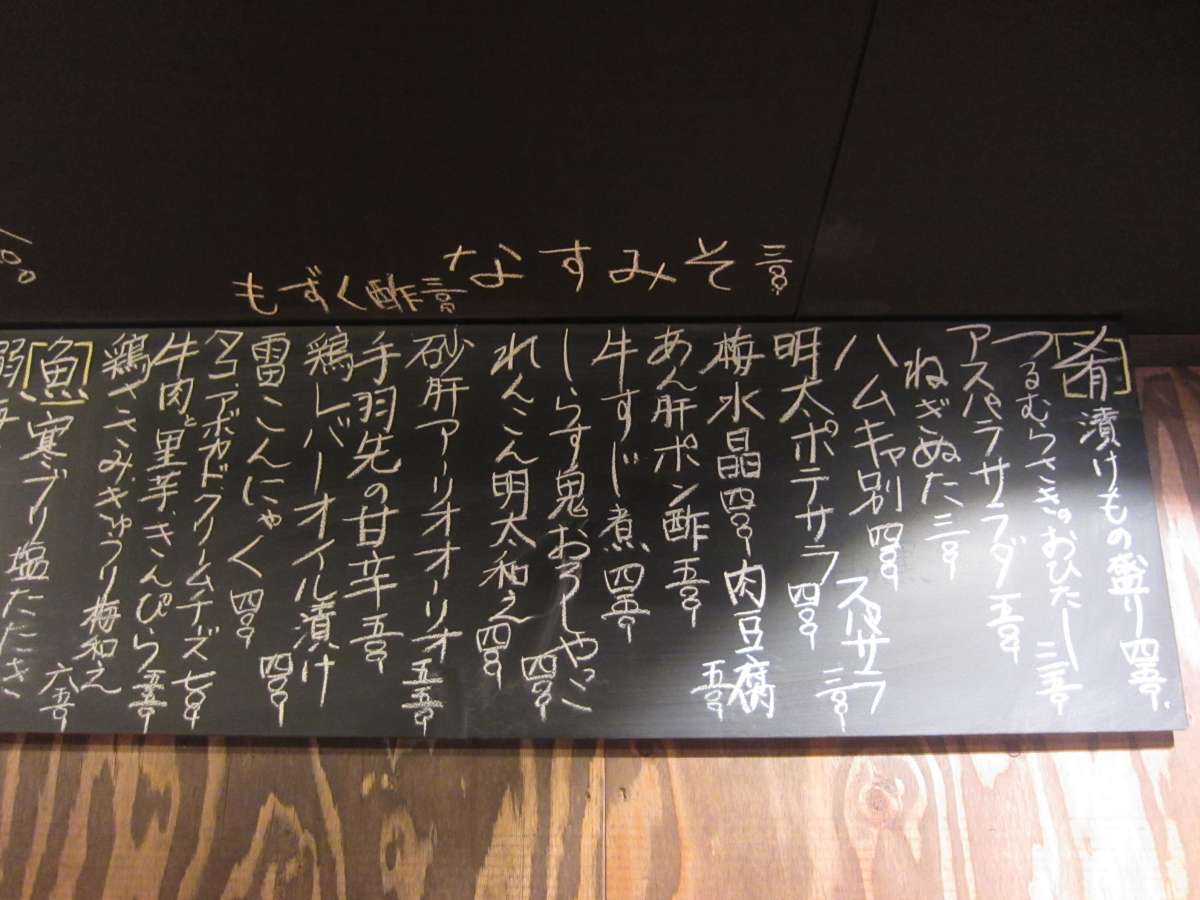 なすみそ 三百
もずく酢 三百
肴 漬けもの盛り 四五〇
つるむらさきのおひたし 三五〇
アスパラサラダ 五〇〇
ねぎぬた 三〇〇
ハムキャ別 四〇〇 スパサラ 三〇〇
明太ポテサラ 四〇〇
梅水晶 四〇〇 肉豆腐 五〇〇
あん肝ポン酢 五〇〇
牛すじ煮 四五〇
しらす鬼おろしやっこ 四〇〇
れんこん明太和え 四〇〇
砂肝アーリオオーリオ 五五〇
手羽先の甘辛 五〇〇
鶏レバーオイル漬け 四〇〇
雷こんにゃく 四〇〇
タコ、アボカドクリームチーズ 七〇〇
牛肉と里芋、きんぴら 五五〇
鶏ささみ、きゅうり梅和え
魚 寒ブリ塩たたき 六五〇